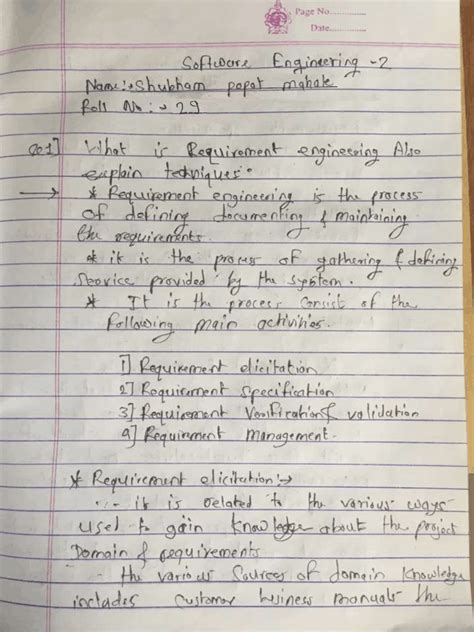 Page No.......
Date.......
Software Engineering - 2
Name:→ Shubham popat mahale
Roll No :→ 29
Q1] What is Requirement engineering Also
explain techniques.
→ * Requirement engineering is the process
of defining documenting & maintaining
the requirements.
* it is the process of gathering & defining
service provided by the system.
* It is the process consist of the
following main activities.
1] Requirement elicitation
2] Requirement specification
3] Requirement Verification & validation
4] Requirement management.
* Requirement elicitation:→
- it is related to the various ways
used to gain knowledge about the project
Domain & requirements
- the various Sources of domain knowledge
includes customer business manuals the